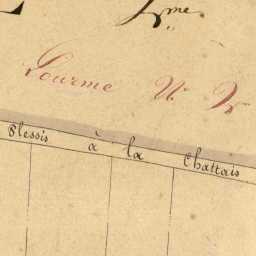 Lourme N.
Plessis à la Chattais